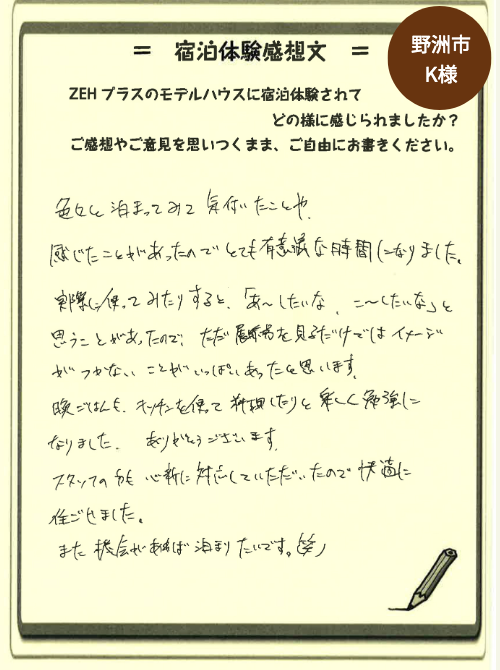 野洲市
K様
＝ 宿泊体験感想文 ＝
ZEHプラスのモデルハウスに宿泊体験されて
どの様に感じられましたか？
ご感想やご意見を思いつくまま、ご自由にお書きください。
色々と泊まってみて気付いたことや、
感じたことがあったのでとても有意義な時間になりました。
実際に使ってみたりすると、「あ〜したいな、こ〜したいな」と
思うことがあったので、ただ展示場を見るだけではイメージ
がつかないことがいっぱいあったと思います。
晩ごはんも、キッチンを使って料理したりと楽しく勉強に
なりました。ありがとうございます。
スタッフの方も心新に対応していただいたので快適に
住ごせました。
また機会があれば泊まりたいです。(笑)